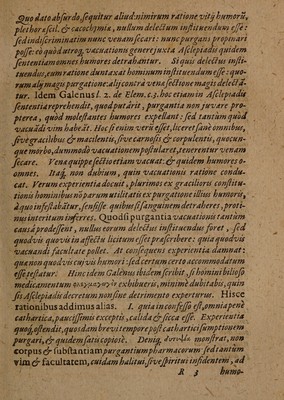 Quo dato absurdo, sequitur aliud nimirum ratione vitij humorū,
plethoræ scil. & cacochymiæ, nullum delectum instituendum esse:
sed indiscriminatim nunc venam secari: nunc purgans propinari
posse: eò quòd utroq, vacuationu genere juxta Asclepiadis quidem
sententiam omnes humores detrahantur. Siquis delectus insti-
tuendus, eum ratione duntaxat hominum instituendum esse: quo-
rum alij magis purgatione: alij contrà venæ sectione magis delectā-
tur. Idem Galenus l. 2. de Elem. c. 3. hoc etiam in Asclepiadis
sententia reprehendit, quod putârit, purgantia non juvare pro-
pterea, quòd molestantes humores expellant: sed tantùm quòd
vacuādi vim habeāt. Hoc si enim verū esset, liceret sanè omnibus,
sive gracilibus & macilentis, sive carnosis & corpulentis, quocun-
que morbo, dummodo vacuationem postularet, tenerentur venam
secare. Venæ quippe sectio etiam vacuat: & quidem humores o-
omnes. Itaq, non dubium, quin vacuationis ratione condu-
cat. Verum experientia docuit, plurimos ex gracilioris constitu-
tionis hominibus nō parum utilitatis ex purgatione illius humoris,
à quo infestabātur, sensisse: quibus si sanguinem detraheres, prot-
nus interitum inferres. Quodsi purgantia vacuationis tantùm
causâ prodessent, nullus eorum delectus instituendus foret, sed
quodvis quovis in affectu licitum esset præscribere: quia quodvis
vacuandi facultate pollet. At consequens experientia damnat:
quæ non quodvis cuivis humori: sed certum certo accommodatum
esse testatur. Hinc idem Galenus ibidem scribit, si homini bilioso
medicamentum exhibueris, minimè dubitabis, quin
sis Asclepiadis decretum non sine detrimento experturus. Hisce
rationibus addimus alias. I. quia in confesso est, omnia penè
cathartica, paucissimis exceptis, calida & sicca esse. Experientia
quoq, ostendit, quosdam brevi tempore post cathartici sumptionem
purgari, & quidem satis copiosè. Deniq, monstrat, non
corpus & substantiam purgantium pharmacorum: sed tantùm
vim & facultatem, cuidam halitui, sive spiritui infidentem, ad
R 3 humo-